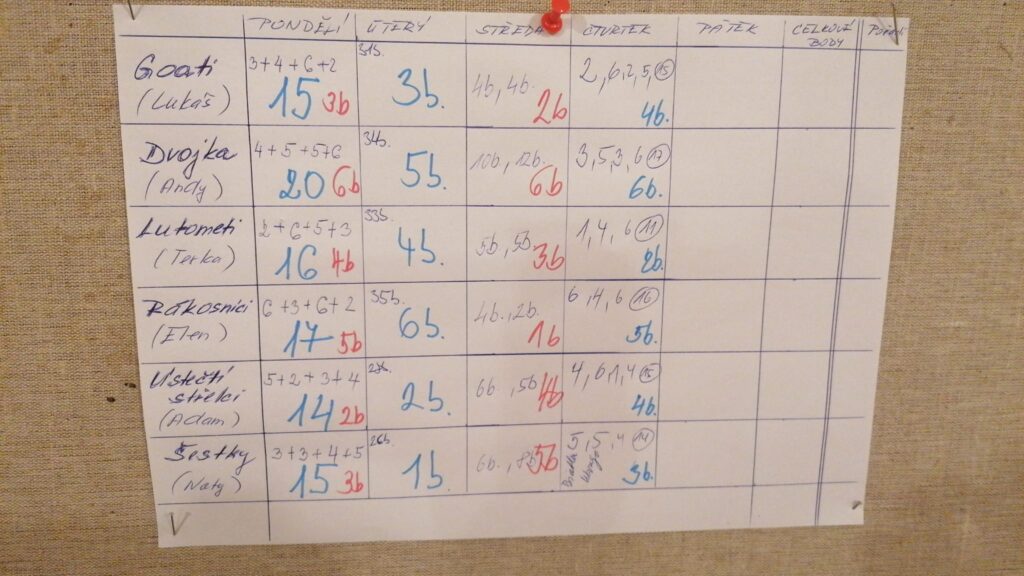 PONDĚLÍ ÚTERÝ STŘEDA ČTVRTEK PÁTEK CELKOVÉ BODY
Goati (Lukáš)
3+4+6+2
15 3b
31b.
3b.
4b, 4b.
2b
2, 6, 2, 5, 15
4b.
Dvojka (Andy)
4+5+5+6
20 6b
34b.
5b.
10b, 12b.
6b
3, 5, 3, 6 17
6b.
Lutometi (Terka)
2+6+5+3
16 4b
33b.
4b.
5b, 5b
3b
1, 4, 6 11
2b.
Rákosníci (Elen)
6+3+6+2
17 5b
35b.
6b.
4b., 2b.
1b
6, 4, 6 16
5b.
Ústečtí střelci (Adam)
5+2+3+4
14 2b
2b.
6b., 5b
4b
4, 6, 1, 4 15
4b.
Šestky (Naty)
3+3+4+5
15 3b
26b.
1b.
6b.,
5b
4 14
3b.